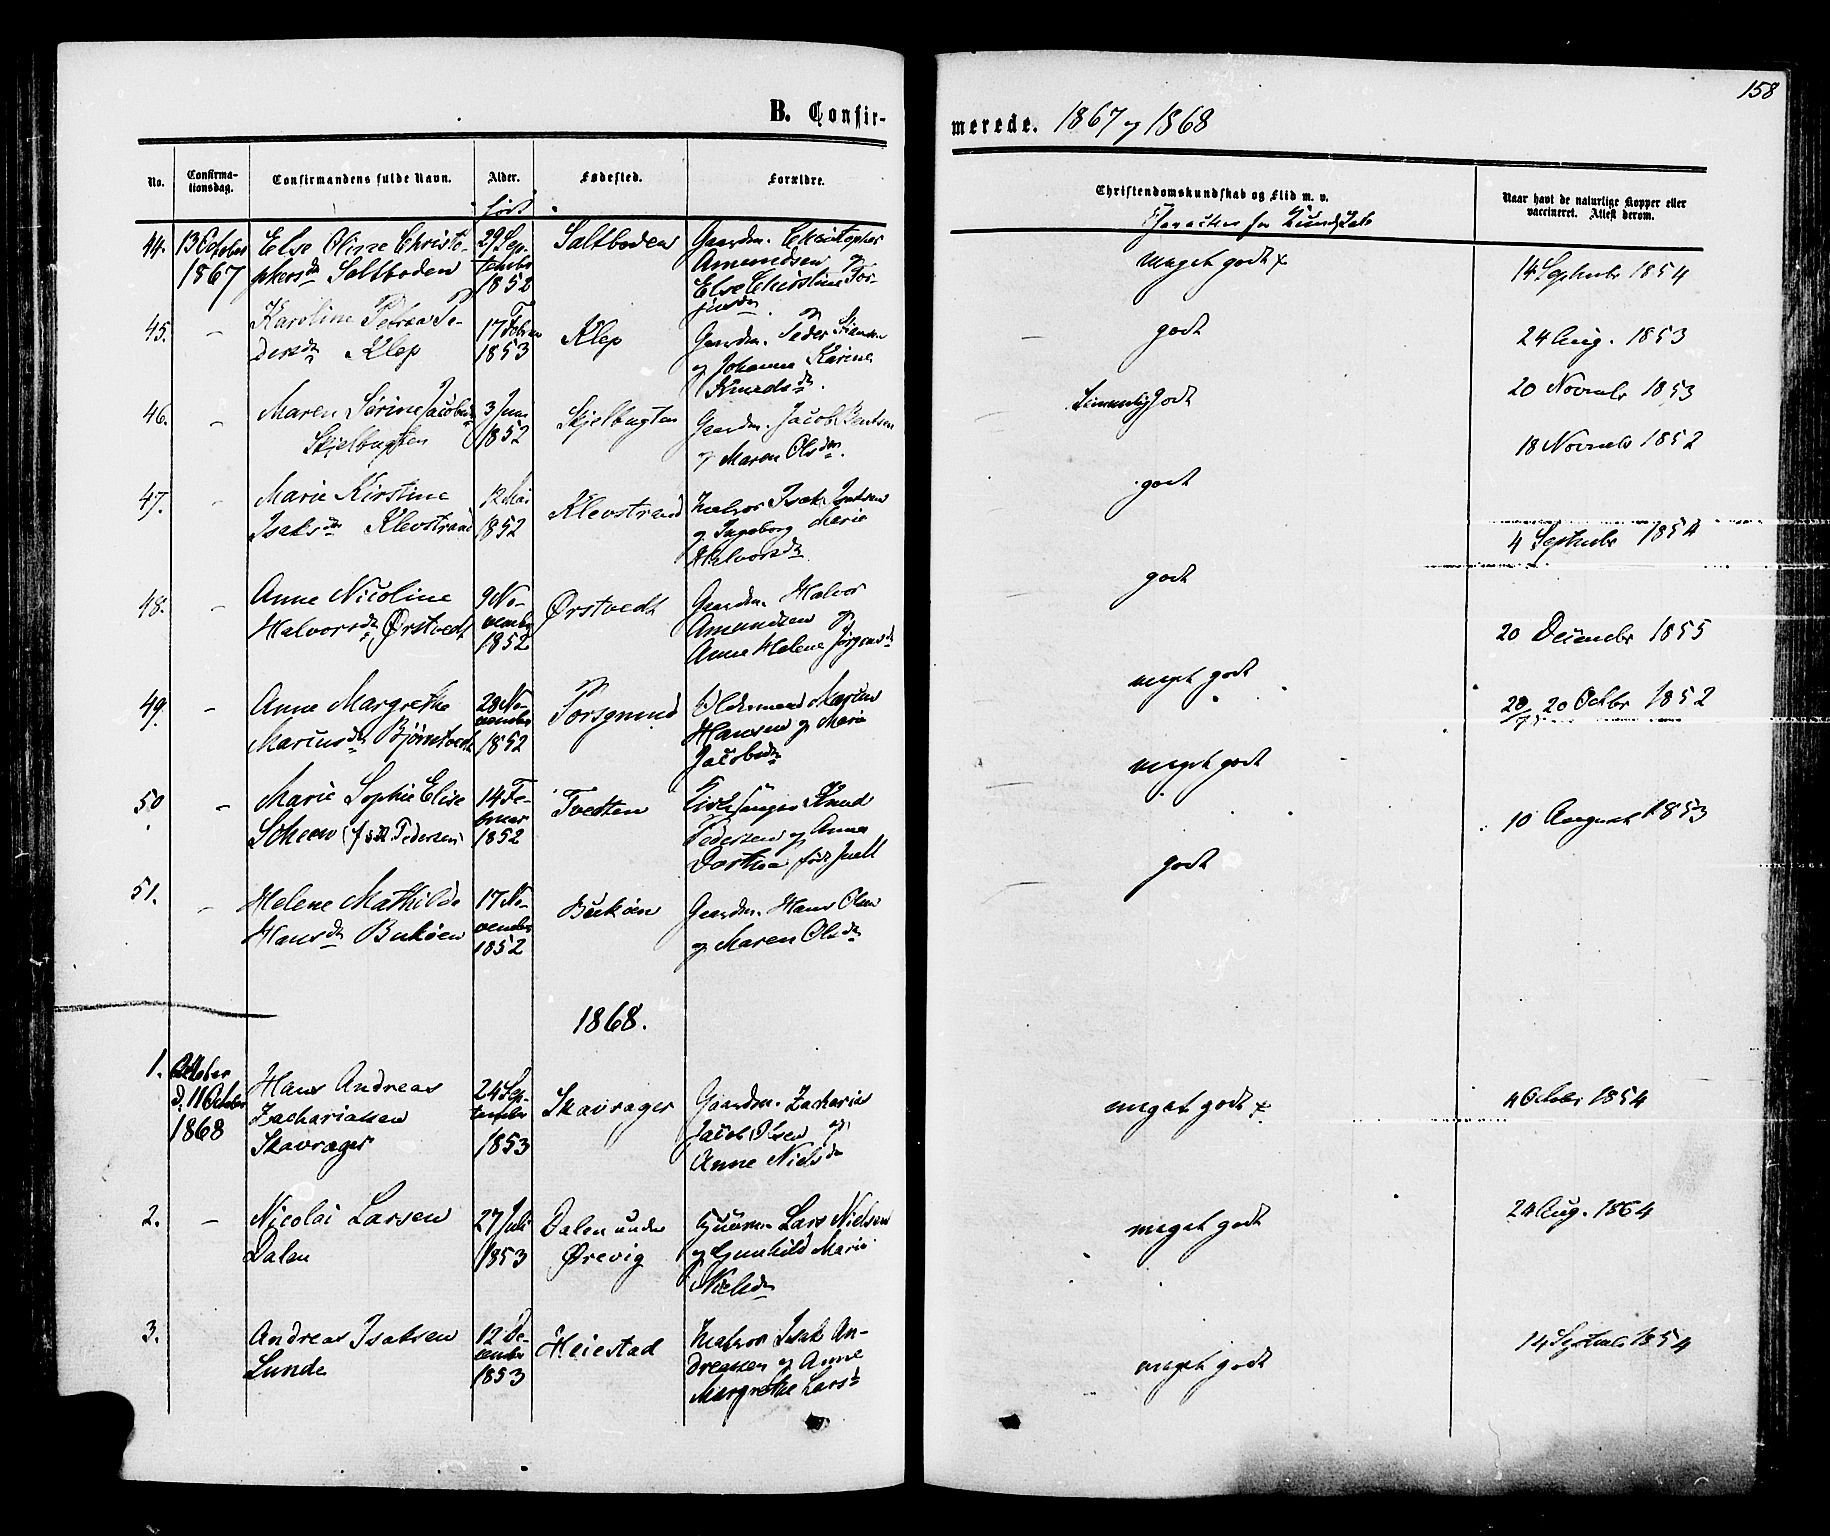 158
B. Confir-
merede. 1867 og 1868
No.
Confirma-
tionsdag.
Confirmandens fulde Navn.
Alder.
født
Fødested.
Forældre.
Christendomskundskab og Flid m. v.
Naar havt de naturlige Kopper eller
vaccineret. Attest derom.
44. 13 October 1867
Else Oline Christo-
phersd. Saltboden
29 Sep-
tember
1852
Saltboden
Gaardm. Christopher
Amundsen og
Else Christine Tor-
meget godt
14 September 1854
45. -
Karoline Petrea Pe-
dersd. Klep
17 Febru
1853
Klep
Gaardm. Peder
og Johanne Karine
Knudsd.
godt
24 Aug. 1853
46. -
Maren Sørine Jacobsd.
Skjelbugten
3 Juni
1852
Skjelbugten
Gaardm. Jacob Bentsen
og Maren Olsd.
Temmelig godt
20 Novmbr 1853
47. -
Marie Kirstine
Isaksd. Klevstrand
12 Mai
1852
Klevstrand
Matros Isak
og Ingeborg Marie
Halvorsd.
godt
18 Novmbr 1852
48. -
Anne Nicoline
Halvorsd. Ørstvedt
9 No-
vembr
1852
Ørstvedt
Gaardm. Halvor
Amundsen og
Anne Helene Jørgensd.
godt
4 Septmbr 1854
49. -
Anne Margrethe
Mariusd. Bjørntvedt
28 No-
vember
1852
Porsgrund
Oldermand Marius
Hansen og Maria
Jacobsd.
meget godt
20 Decmbr 1855
50 -
Marie Sophie Elise
Scheen (f. Pedersen)
14 Fe-
bruar
1852
Tvedten
Kirkesanger Knud
Pedersen og Anna
Dorthea født Juell
meget godt
20 Octbr 1852
51. -
Helene Mathilde
Hansd. Bukøen
17 No-
vember
1852
Bukøen
Gaardm. Hans Olsen
og Maren Olsd.
godt
10 August 1853
1868.
1.
d. 11 October
1868
Hans Andreas
Zachariasen
Skavrager
24 Sep-
tember
1853
Skavrager
Gaardm. Zacharias
Jacob Olsen og
Anne Nielsd.
meget godt
4 Octobr 1854
2. -
Nicolai Larsen
Dalen
27 Juli
1853
Dalen under
Ørevig
Huusm. Lars Nielsen
og Gunhild Marie
Nielsd.
meget godt
24 Aug. 1864
3.
Andreas Isaksen
Lunde
12 De-
cember
1853
Heiestad
Matros Isak An-
dreasen og Anne
Margrethe Larsd.
meget godt
14 Septmbr 1854